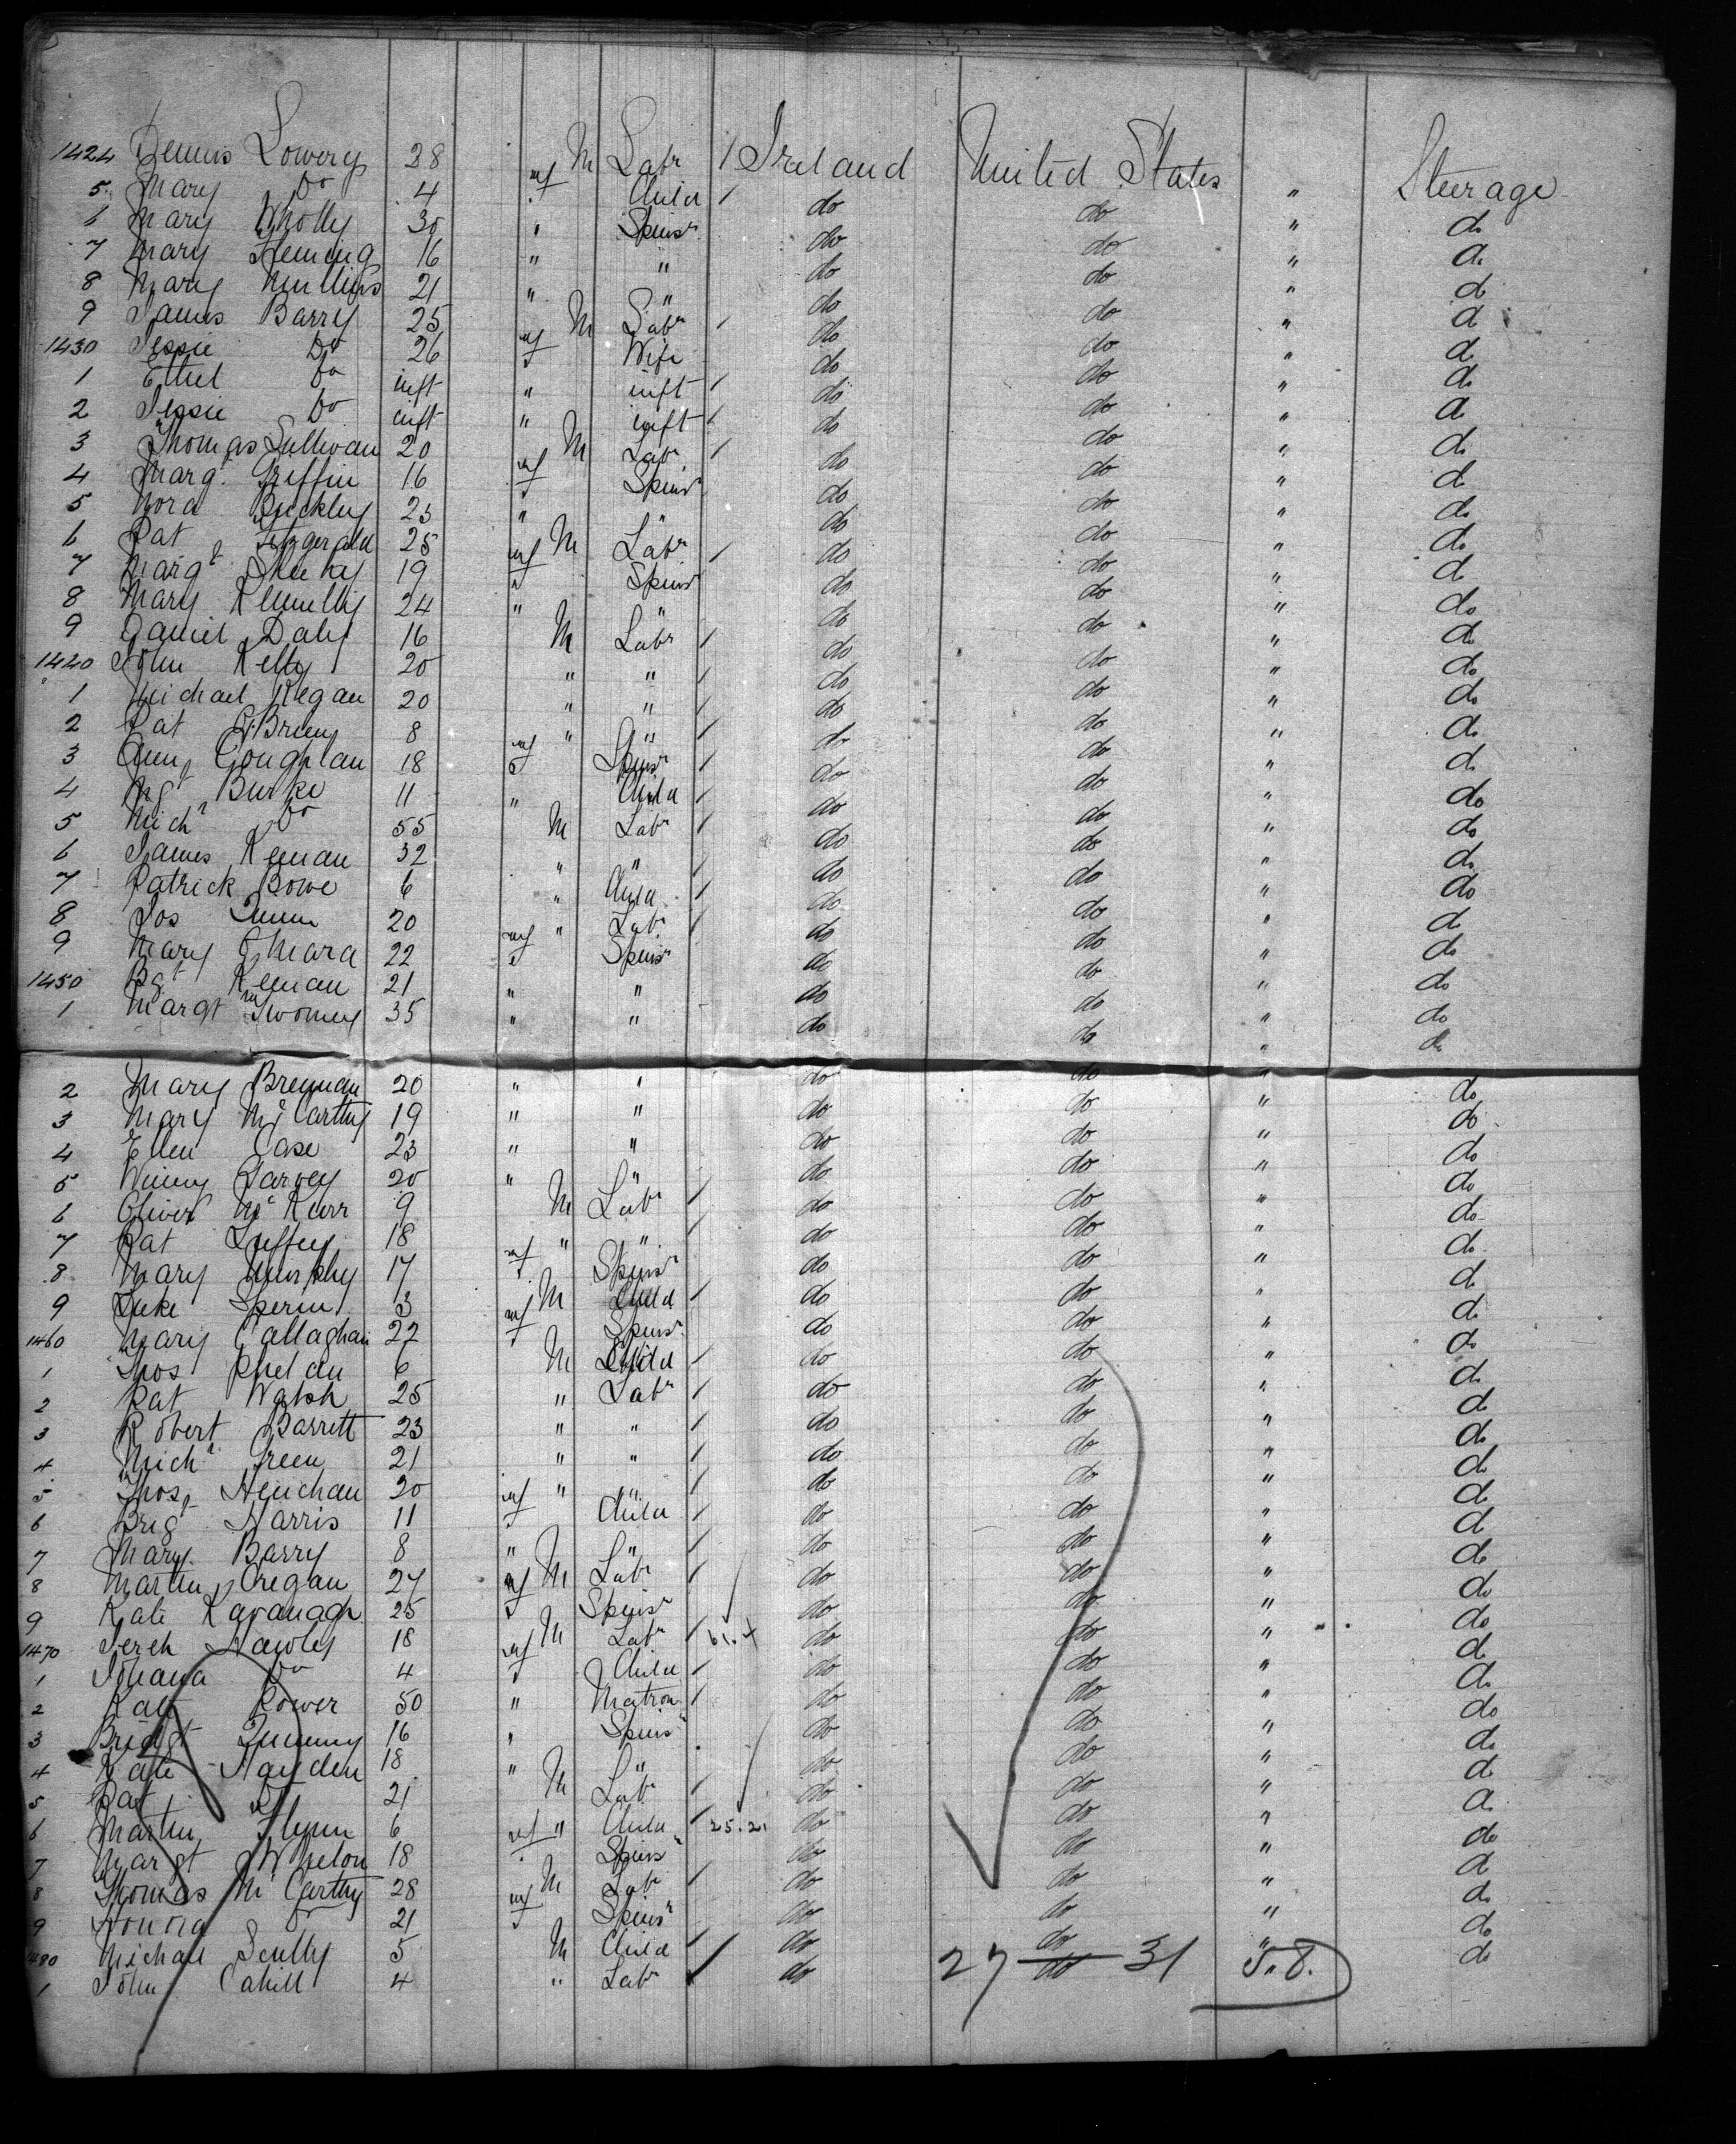 1424 Dennis Lowery 28 M Labr / Ireland United States " Steerage
5 Mary Do 4 f Child / do do " do
6 Mary Wholly 30 " Spinsr do do " do
7 Mary Fleming 16 " " do do " do
8 Mary Mullins 21 " " do do " do
9 James Barry 25 M Labr / do do " do
1430 Jessie Do 26 f Wife do do " do
1 Ethel Do inft " inft / do do " do
2 Jessie Do inft " inft / do do " do
3 Thomas Sullivan 20 M Labr / do do " do
4 Margt Griffin 16 f Spinsr do do " do
5 Nora Buckley 23 " " do do " do
6 Pat Fitzgerald 25 M Labr / do do " do
7 Margt Sheehy 19 f Spinsr do do " do
8 Mary 24 " " do do " do
9 Daniel Daly 16 M Labr / do do " do
1440 John Kelly 20 " " / do do " do
1 Michael Regan 20 " " / do do " do
2 Pat O'Brien 8 " " / do do " do
3 Anny Coughlan 18 f Spinsr / do do " do
4 Mgt Burke 11 " Child / do do " do
5 Michl Do 55 M Labr / do do " do
6 James Keenan 32 " " / do do " do
7 Patrick Bowe 6 " Child / do do " do
8 Jos Quinn 20 " Labr / do do " do
9 Mary O'Mara 22 f Spinsr do do " do
1450 Bgt Keenan 21 " " do do " do
1 Margt Twomey 35 " " do do " do
2 Mary Brennan 20 " " do do " do
3 Mary McCarthy 19 " " do do " do
4 Ellen Case 23 " " do do " do
5 Winny Garvey 20 " " do do " do
6 Oliver McKurr 9 M Labr / do do " do
7 Pat Luffey 18 " " / do do " do
8 Mary Murphy 17 f Spinsr do do " do
9 Luke Sperin 3 M Child / do do " do
1460 Mary Callaghan 22 f Spinsr do do " do
1 Thos Phelan 6 M Child / do do " do
2 Pat Walsh 25 " Labr / do do " do
3 Robert Barrett 23 " " / do do " do
4 Michl Green 21 " " / do do " do
5 Thos Henchan 20 " " / do do " do
6 Brigt Harris 11 f Child / do do " do
7 Mary Barry 8 " " / do do " do
8 Martin Oregan 27 M Labr / do do " do
9 Kate Kavanagh 25 f Spinsr do do " do
1470 Jereh Hawley 18 M Labr / 61.4 do do " do
1 Johana Do 4 f Child / do do " do
2 Kate Power 50 " Matron / do do " do
3 Bridgt 16 " Spinsr do do " do
4 Kate Hayden 18 " " do do " do
5 Pat Do 21 M Labr / do do " do
6 Martin Flynn 6 " Child / 25.21 do do " do
7 Margt Whelon 18 f Spinsr do do " do
8 Thomas McCarthy 28 M Labr / do do " do
9 Honora Do 21 f Spinsr do do " do
1480 Michael Scully 5 M Child / do do " do
1 John Cahill 4 " Labr / do 27 do 31 58. do